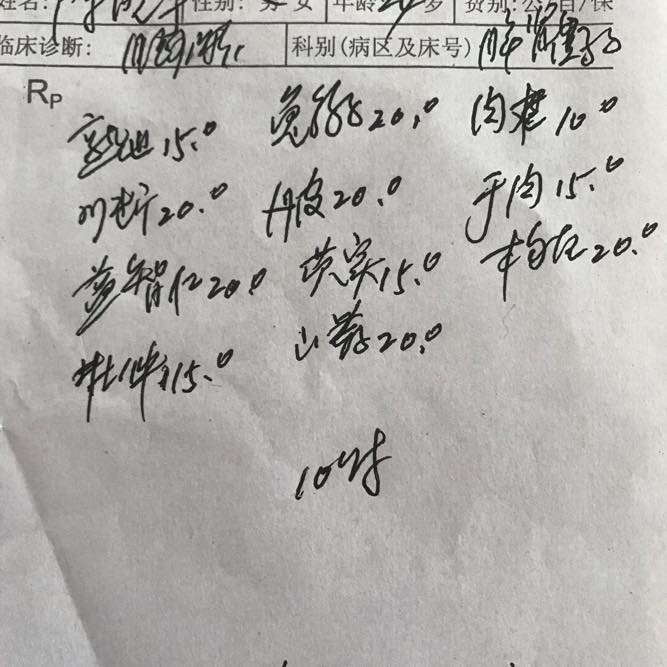 姓名: 性别: 男 女 年龄 24 岁 费别:公 自/保
临床诊断: 科别(病区及床号)
RP
熟地 15.0 菟丝子 20.0 肉苁 10.0
川断 20.0 丹皮 20.0 于肉 15.0
益智仁 20.0 芡实 15.0 20.0
杜仲 15.0 山药 20.0
10付